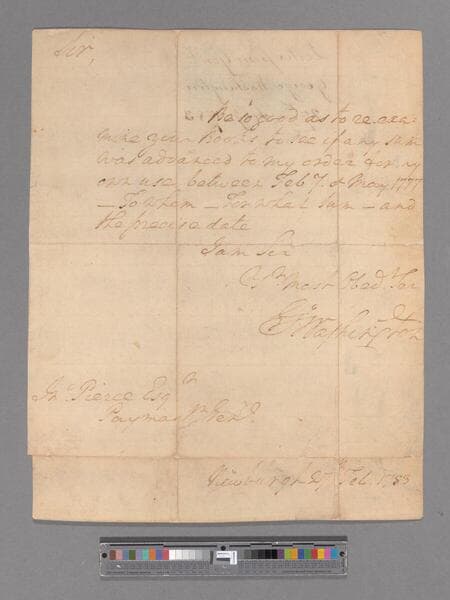 Sir,
Be so good as to reexa-
mine your Books to see if any sum
was advanced to my order & for my
own use, between Feb 7. & May 1777
– To whom – For what sum – and
the precise date
I am Sir
Yr. Most Obed. Ser
Go: Washington
Jno. Pierce Esqr.
Paymastr. Genl.
Newburgh Feb. 1783